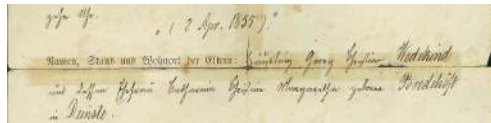 zehn Uhr.
„ (2 Apr. 1835).“
Namen, Stand und Wohnort der Eltern: Häusling Georg Christian Wedekind
und dessen Ehefrau Catharine Christine Margaretha geborne Bredehöft
in Deinste.